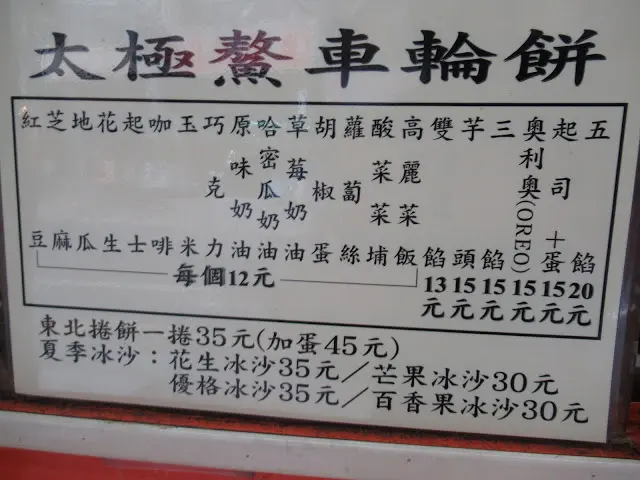 太極鰲車輪餅
紅豆
芝麻
地瓜
花生
起士
咖啡
玉米
巧克力
原味奶油
哈密瓜奶油
草莓奶油
胡椒蛋
蘿蔔絲
酸菜菜埔
高麗菜飯
每個12元
雙餡13元
芋頭15元
三餡15元
奧利奧(OREO)15元
起司+蛋15元
五餡20元
東北捲餅一捲35元(加蛋45元)
夏季冰沙：花生冰沙35元／芒果冰沙30元
優格冰沙35元／百香果冰沙30元